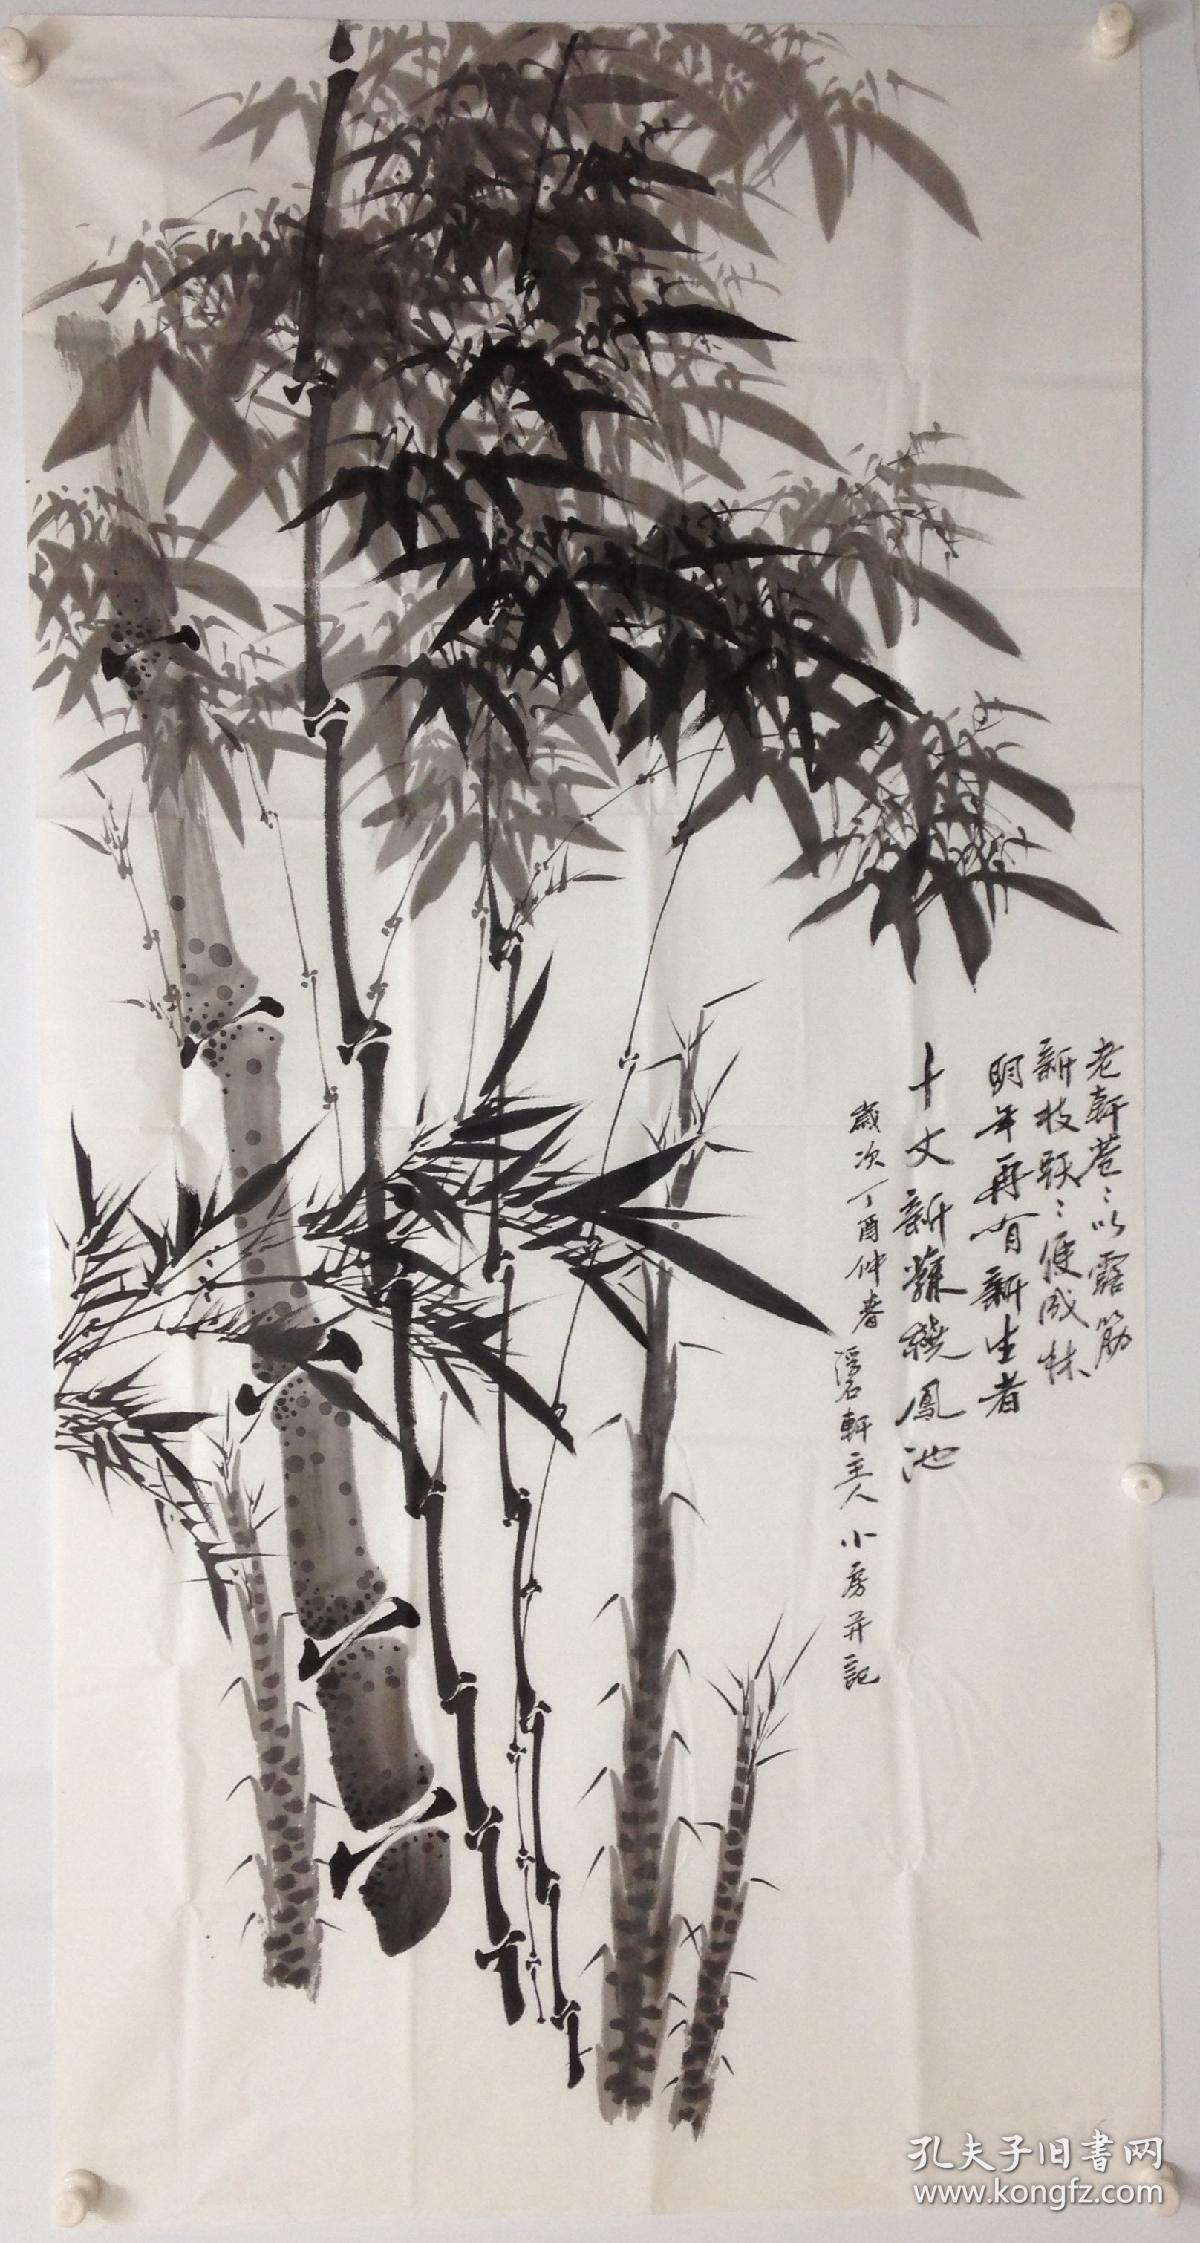 老軒蒼:以露筋
新枝躍:便成林
明年再有新生者
十丈新龍繞鳳池
歲次丁酉仲春
軒主人小房并記
孔夫子旧書网
www.kongfz.com